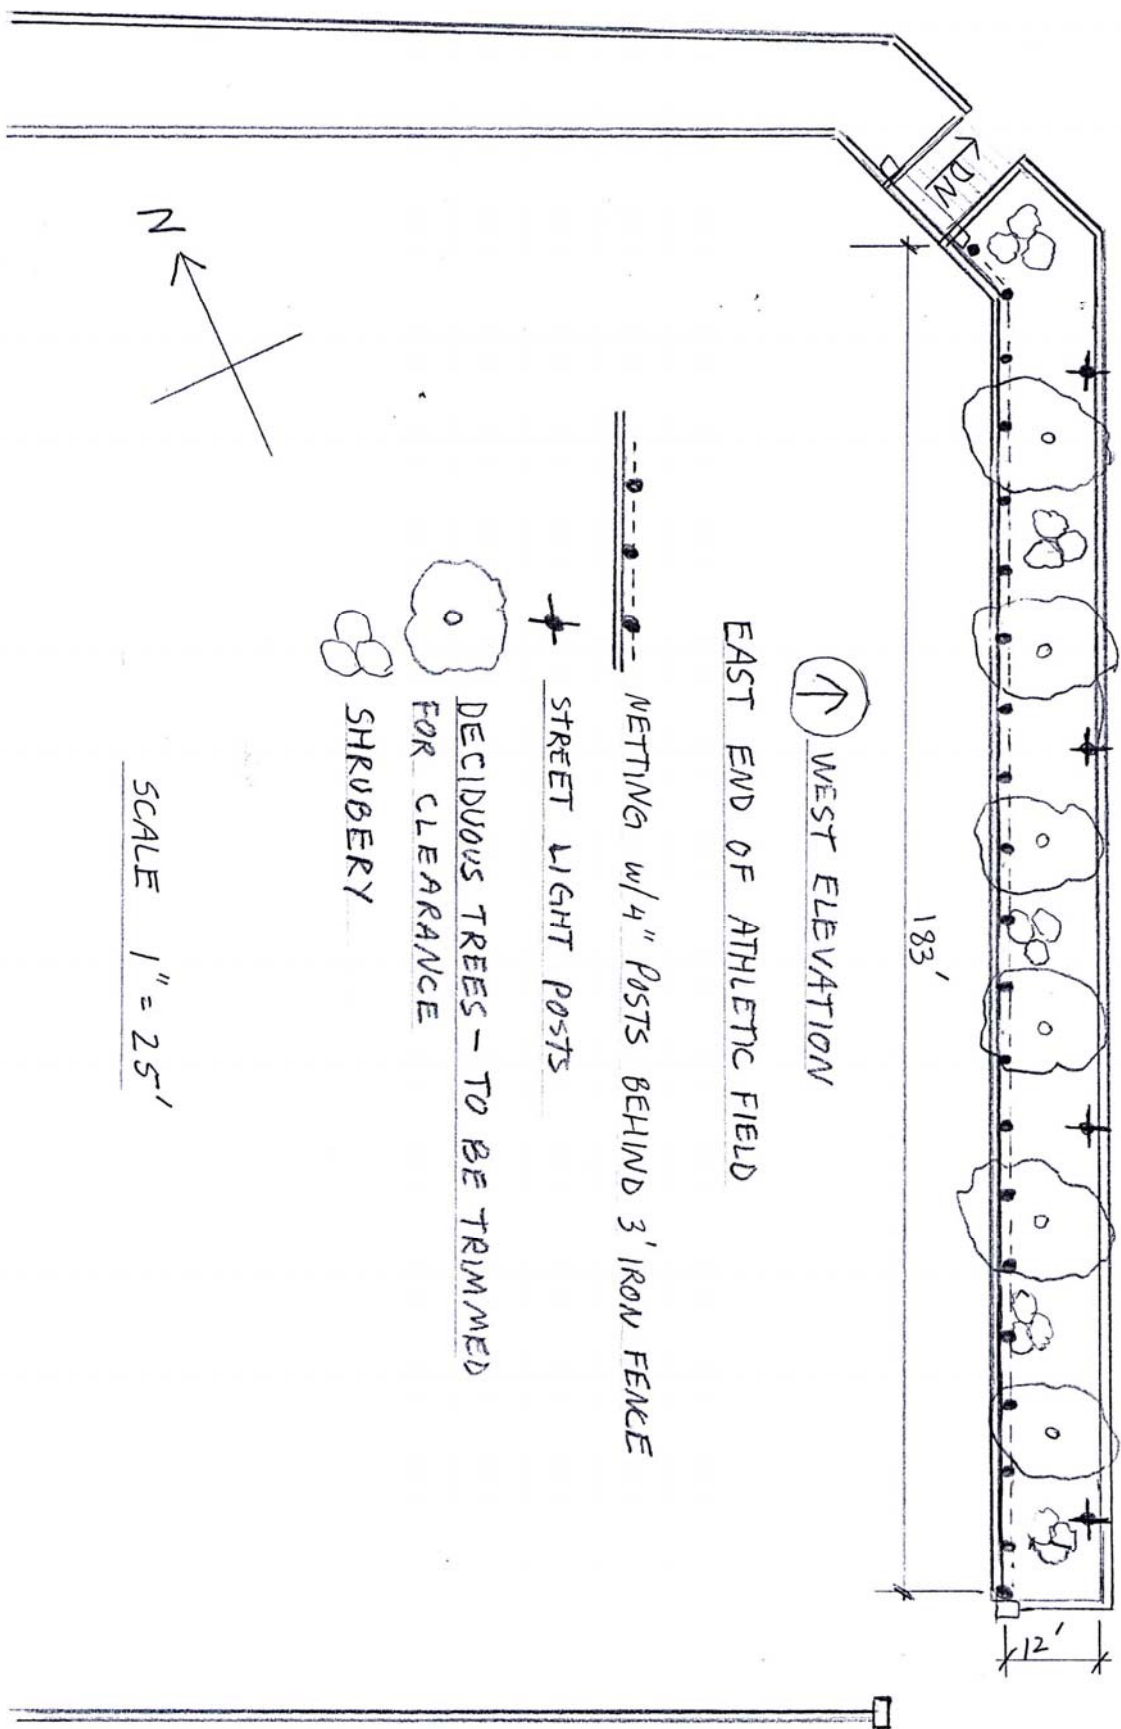 DN
183'
12'
WEST ELEVATION
EAST END OF ATHLETIC FIELD
NETTING W/4" POSTS BEHIND 3' IRON FENCE
STREET LIGHT POSTS
DECIDUOUS TREES - TO BE TRIMMED
FOR CLEARANCE
SHRUBERY
N
SCALE 1" = 25'